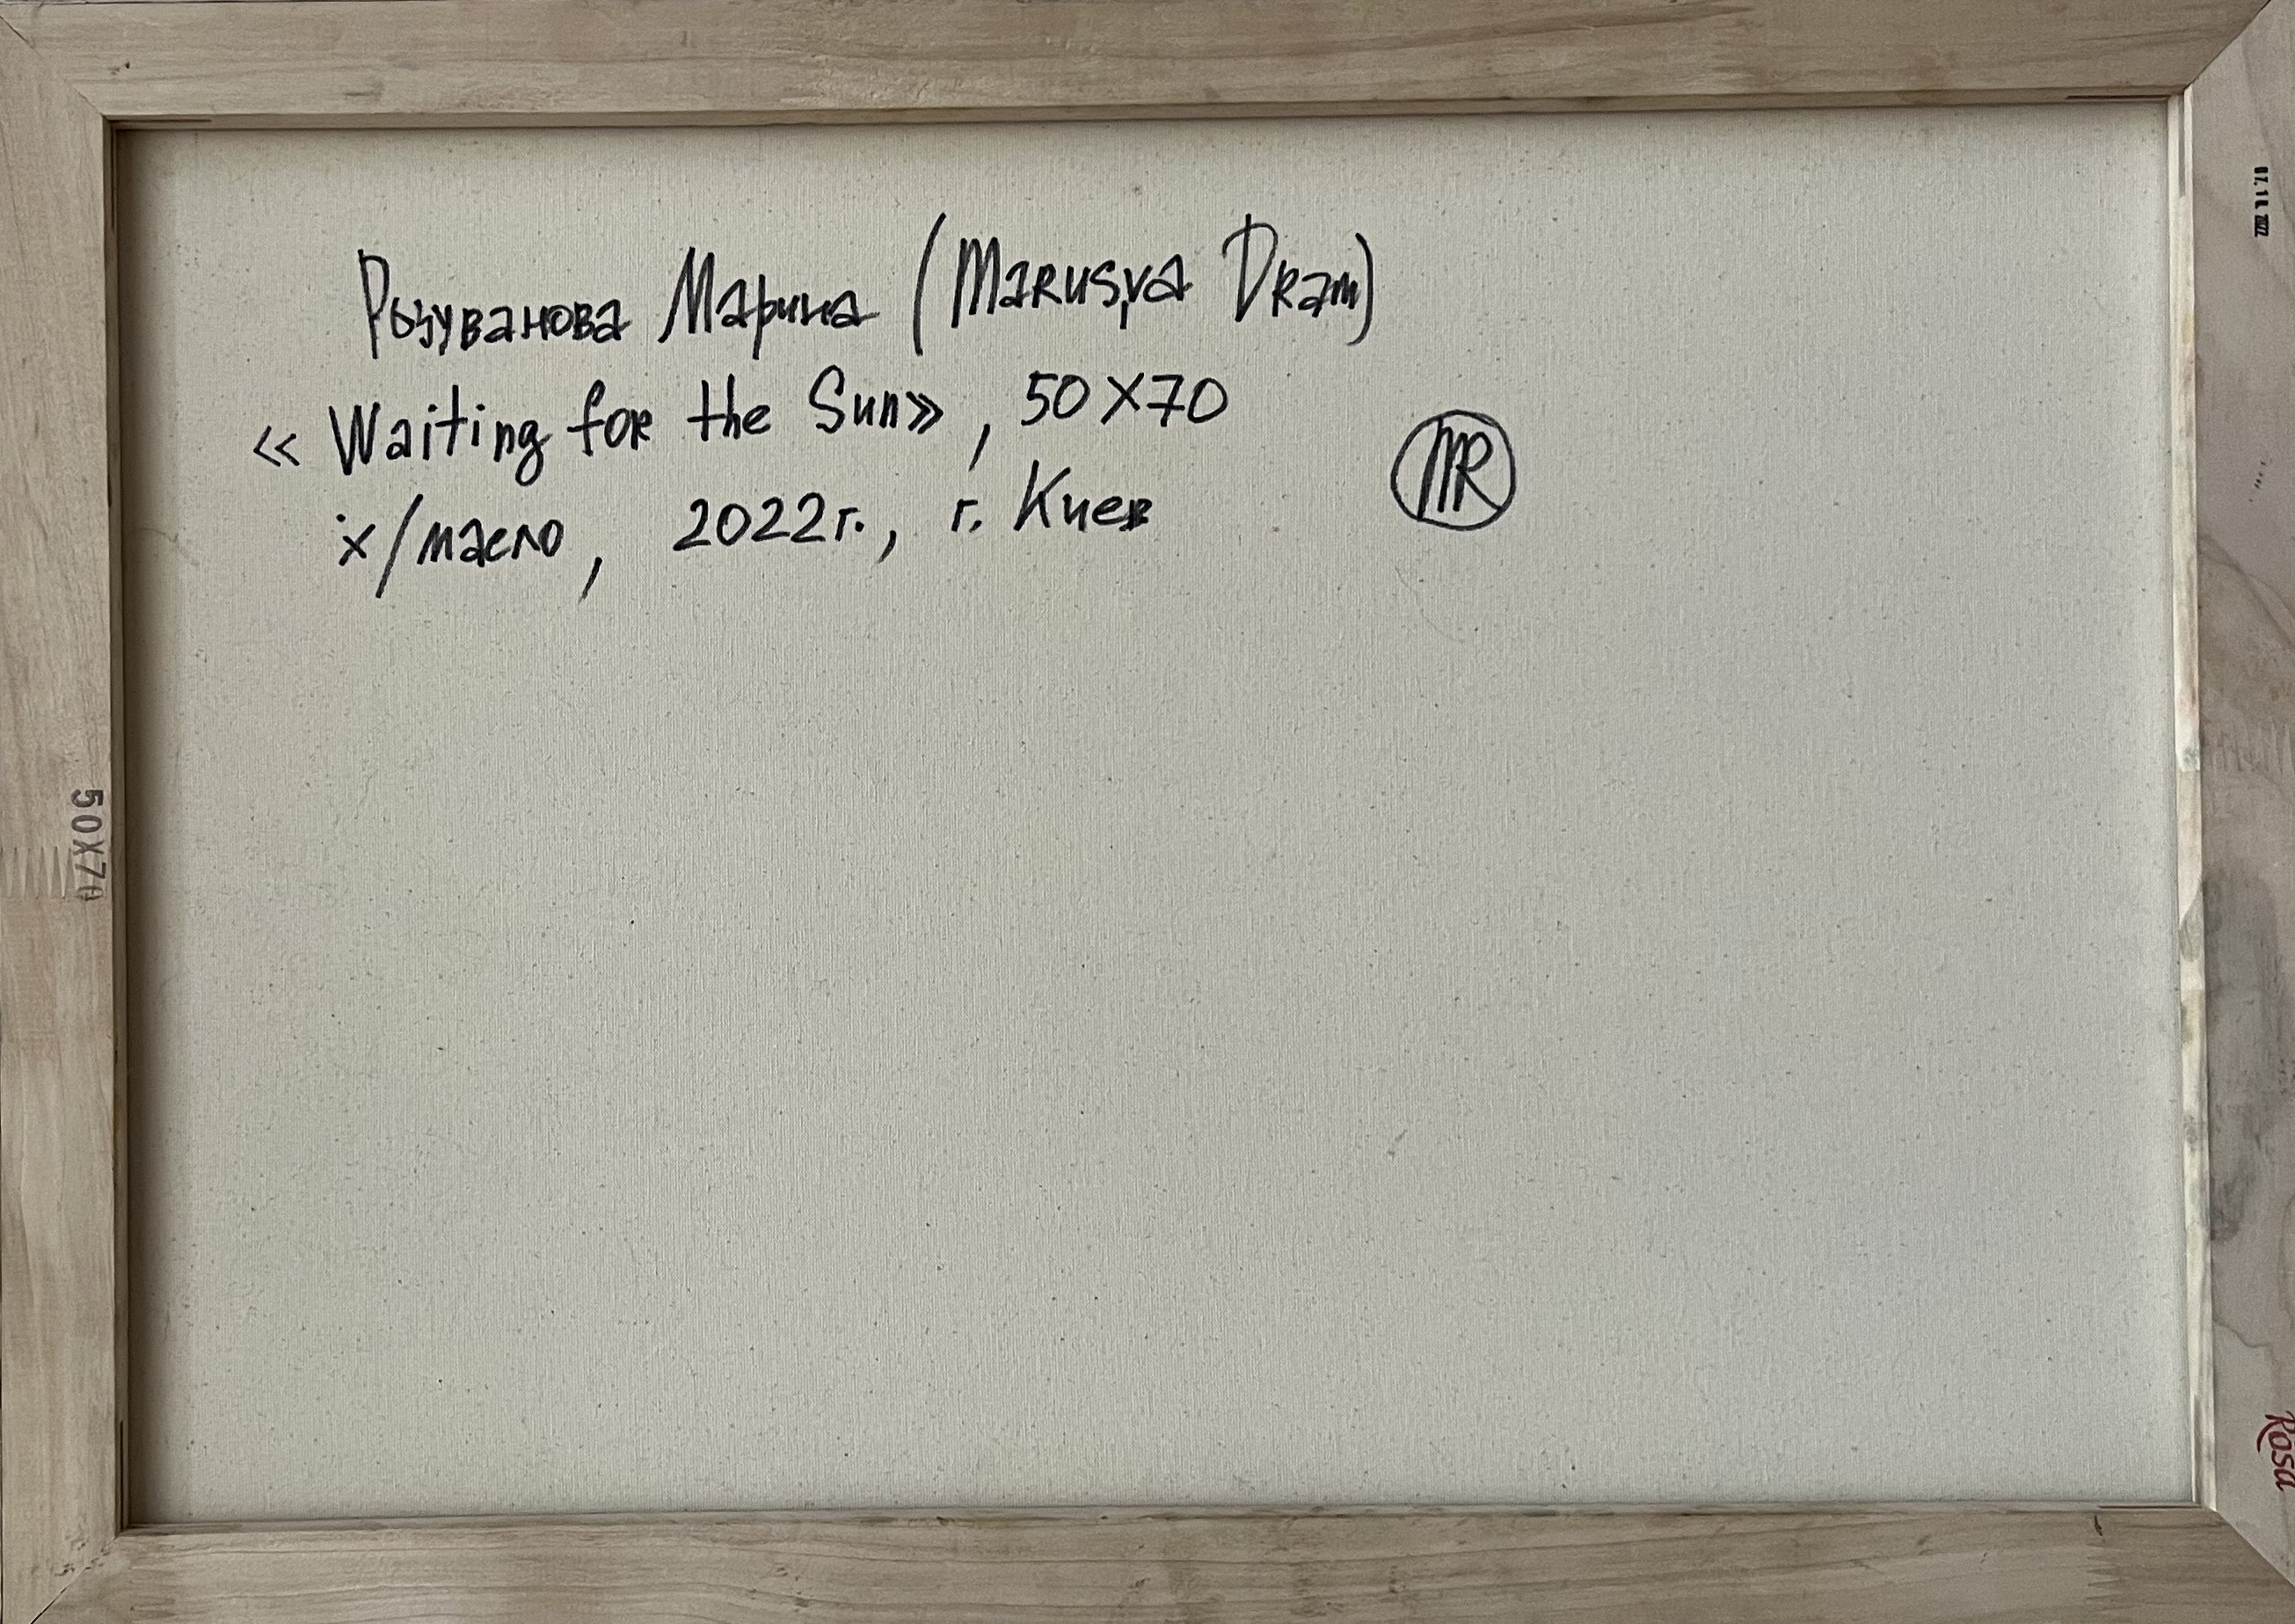 Рызуванова Марина (Marusya Dram)
« Waiting for the Sun» , 50X70
х/масло, 2022г., г. Киев
MR
50X70
Rosa